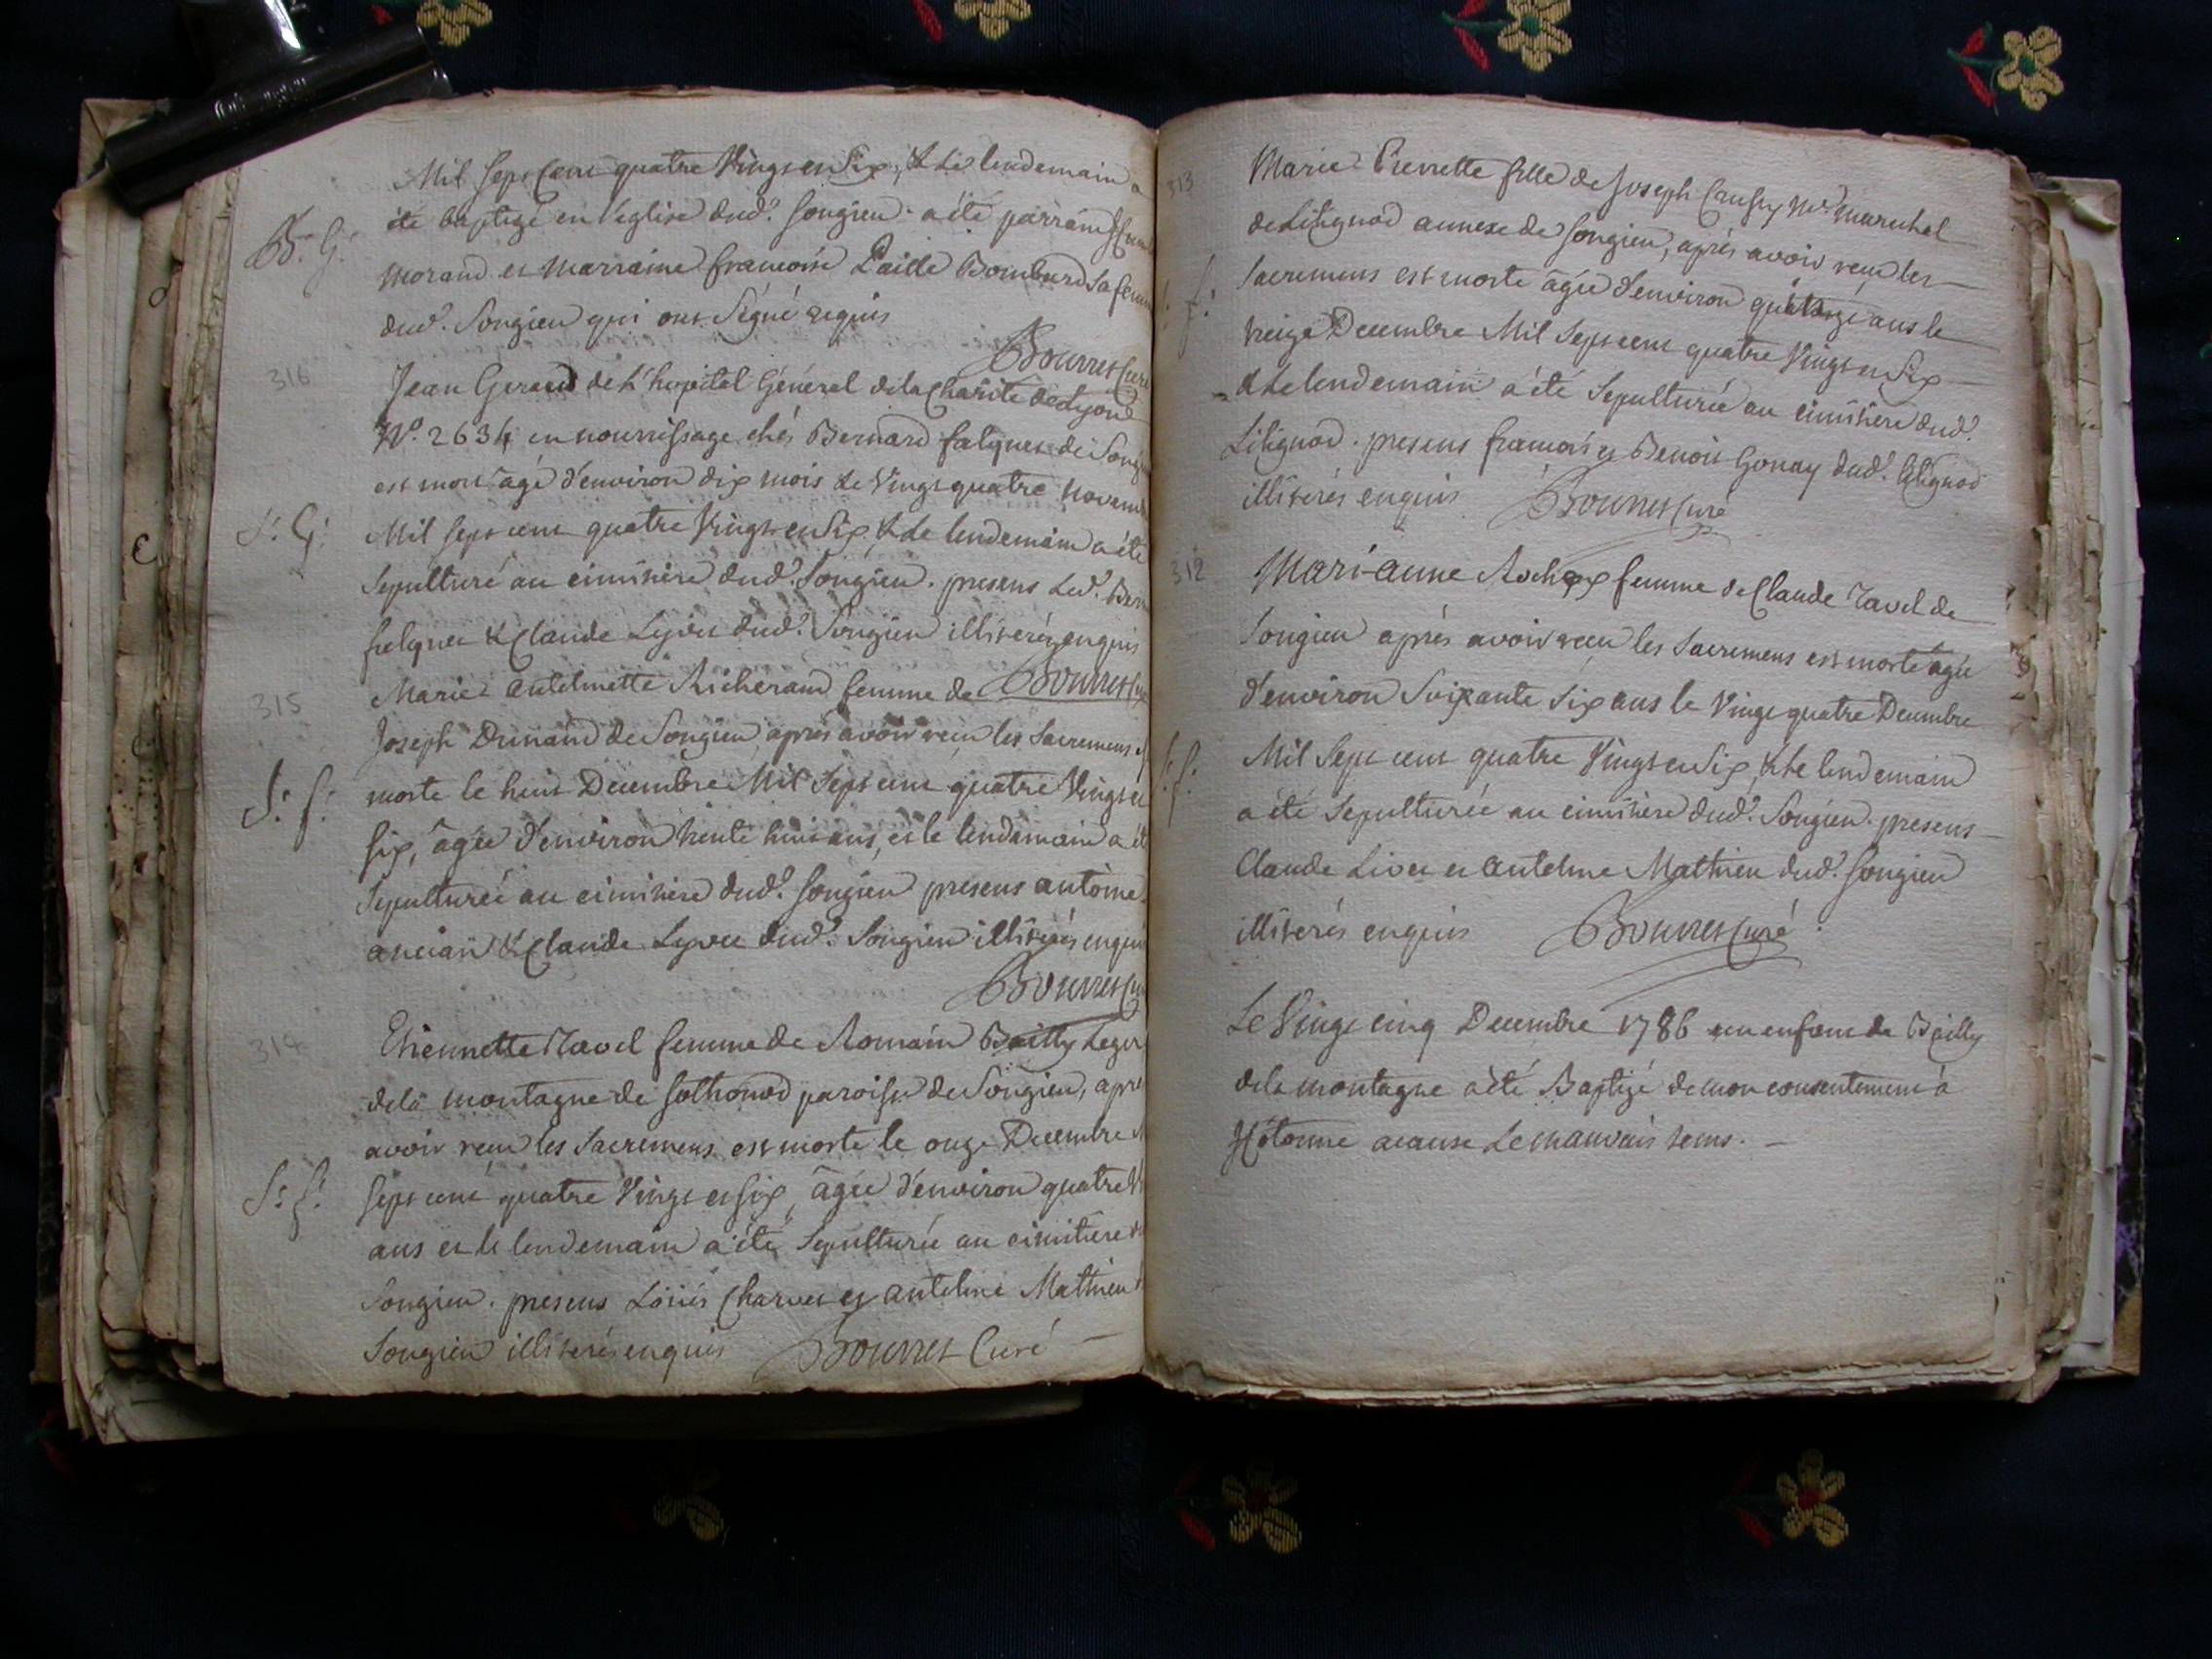 Mil sept cent quatre Vingt en Six, & Le lendemain a
été baptizé en l'eglise dud.t Songieu. a été parrain
B. G.
morand et marraine francoise Paille Bombard sa femme
dud.t Songieu qui ont Signé requis
Bourret Curé
316
Jean Geraud de L'hopital Général de la Charité de Lyon
N.o 2634 en nourrissage chés Bernard falquet de Songieu
est mort agé d'environ dix mois le Vingt quatre Novemb
S. G.
Mil Sept cent quatre Vingt en Six, & Le lendemain a été
Sepulturé au cimitiere dud.t Songieu. presens Led.t Ber
falquet & Claude Lyvet dud.t Songieu illiterés enquis
Bourret Cu
315
Marie antelmette Richerand femme de
Joseph Dunand de Songieu apres avoir recu les Sacremens
S. f.
morte le huit Decembre Mil Sept cent quatre Vingt et
six, âgée d'environ trente huit ans, et le lendemain a ét
Sepulturée au cimitiere dud.t Songieu presens antoine
ancian & Claude Lyvet dud.t Songieu illiterés enquis
Bourret Cu
314
Etiennette Tavel femme de Romain Bailly Leger
dela montagne de Sothonod paroisse de Songieu, apre
avoir recu les Sacremens est morte le onze Decembre M
S. f.
Sept cent quatre Vingt et six, âgée d'environ quatre V
ans et le lendemain a été Sepulturée au cimitiere
Songieu. presens Loüis Charvet et antelme Mathieu
Songieu illiterés enquis Bourret Curé
313
Marie Pierrette fille de Joseph M.e Marechal
de Litignod annexe de Songieu, après avoir recu les
S. f.
Sacremens est morte âgée d'environ quatorze ans le
treize Decembre Mil Sept cent quatre Vingt en Six
& Le lendemain a été Sepulturée au cimitiere dud.t
Litignod. presens francois et Benoit Gonay dud.t Litignod
illiterés enquis Bourret Curé
312
Mari-anne femme de Claude Tavel de
Songieu après avoir recu les Sacremens est morte agée
d'environ Soixante Six ans le Vingt quatre Decembre
S. f.
Mil Sept cent quatre Vingt en Six, & Le lendemain
a été Sepulturée au cimitiere dud.t Songieu. presens
Claude Livet et antelme Mathieu dud.t Songieu
illiterés enquis Bourret Curé
Le Vingt cinq Decembre 1786 un enfant de Bailly
dela montagne a été Baptizé de mon consentement à
Hotonne acause Le mauvais tems.